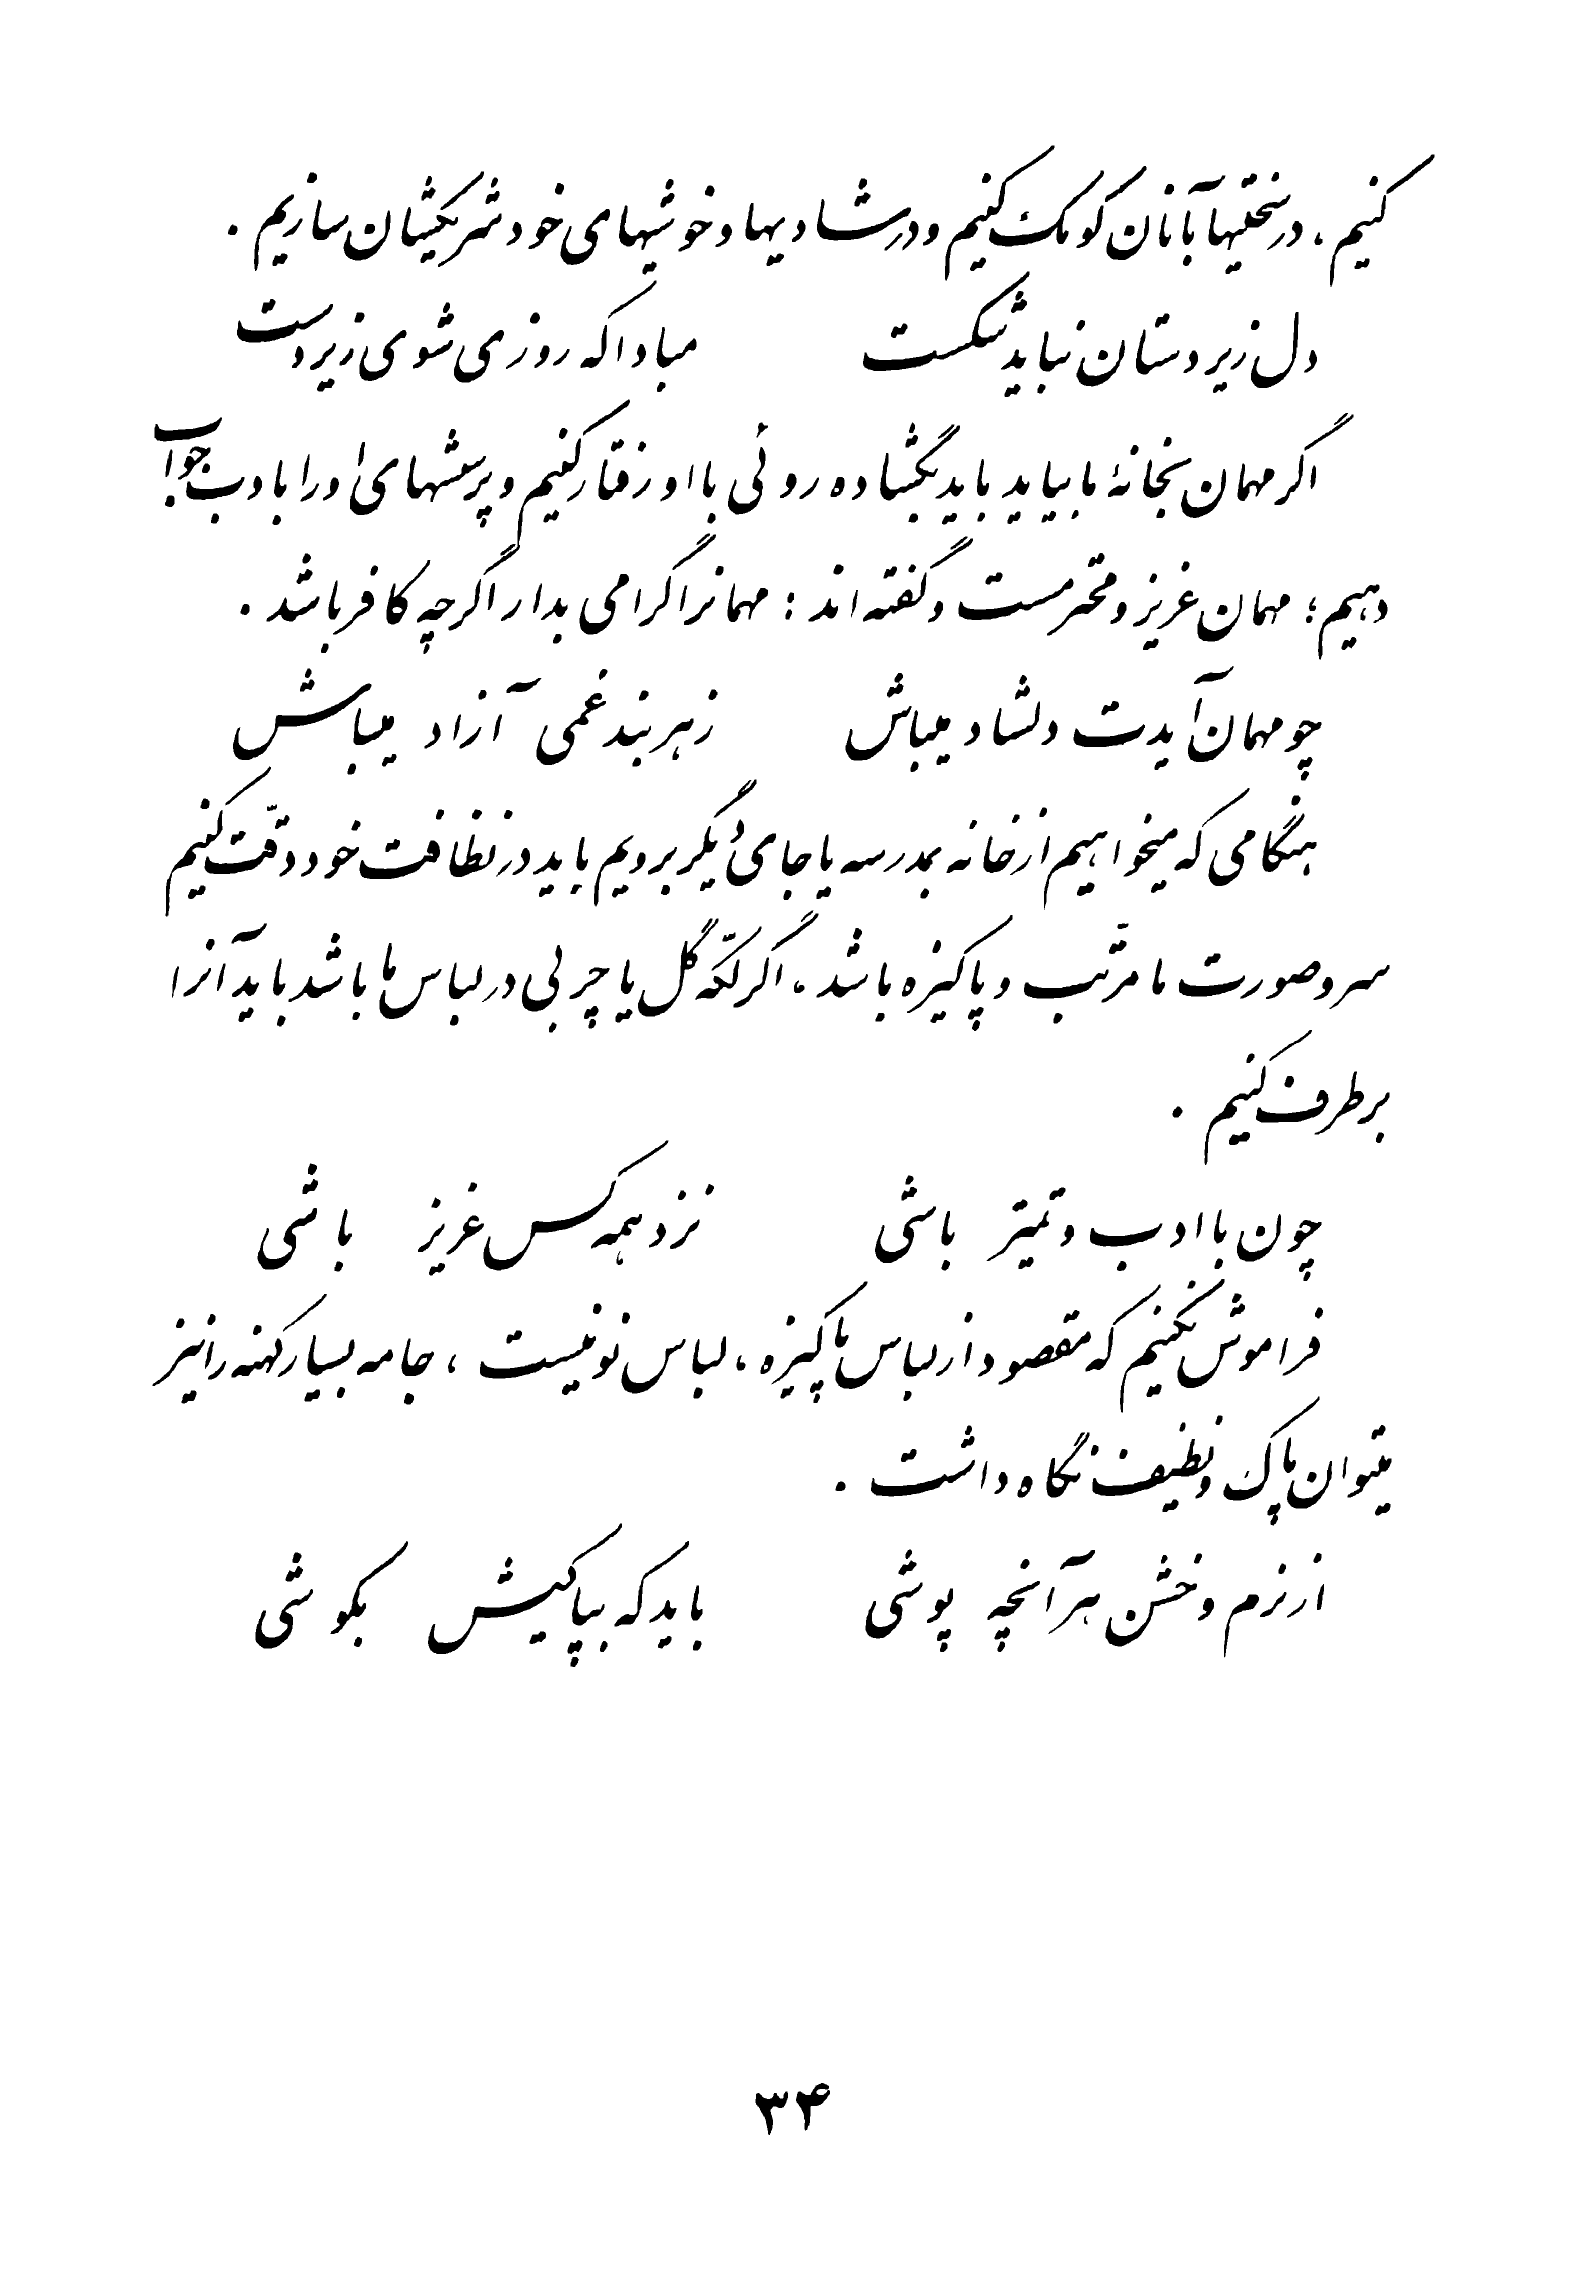 کنیم، در سختیها بآنان کومک کنیم و در شادیها و خوشیهای خود شریکشان سازیم.
دل زیردستان نباید شکست مبادا که روزی شوی زیردست
اگر مهمان بخانهٔ ما بیاید باید بگشاده روئی با او رفتار کنیم و پرسشهای او را با ادب جواب
دهیم؛ مهمان عزیز و محترمست و گفته اند: مهمانرا گرامی بدار اگرچه کافر باشد.
چو مهمان آیدت دلشاد میباش زهر بند غمی آزاد میباش
هنگامی که میخواهیم از خانه بمدرسه یا جای دیگر برویم باید در نظافت خود دقّت کنیم
سر و صورت ما مرتّب و پاکیزه باشد، اگر لکّه گل یا چربی در لباس ما باشد باید آنرا
برطرف کنیم.
چون با ادب و تمیز باشی نزد همه کس عزیز باشی
فراموش نکنیم که مقصود از لباس پاکیزه، لباس نو نیست، جامه بسیار کهنه را نیز
میتوان پاک و نظیف نگاه داشت.
از نرم و خشن هر آنچه پوشی باید که بپاکیش بکوشی
۳۴